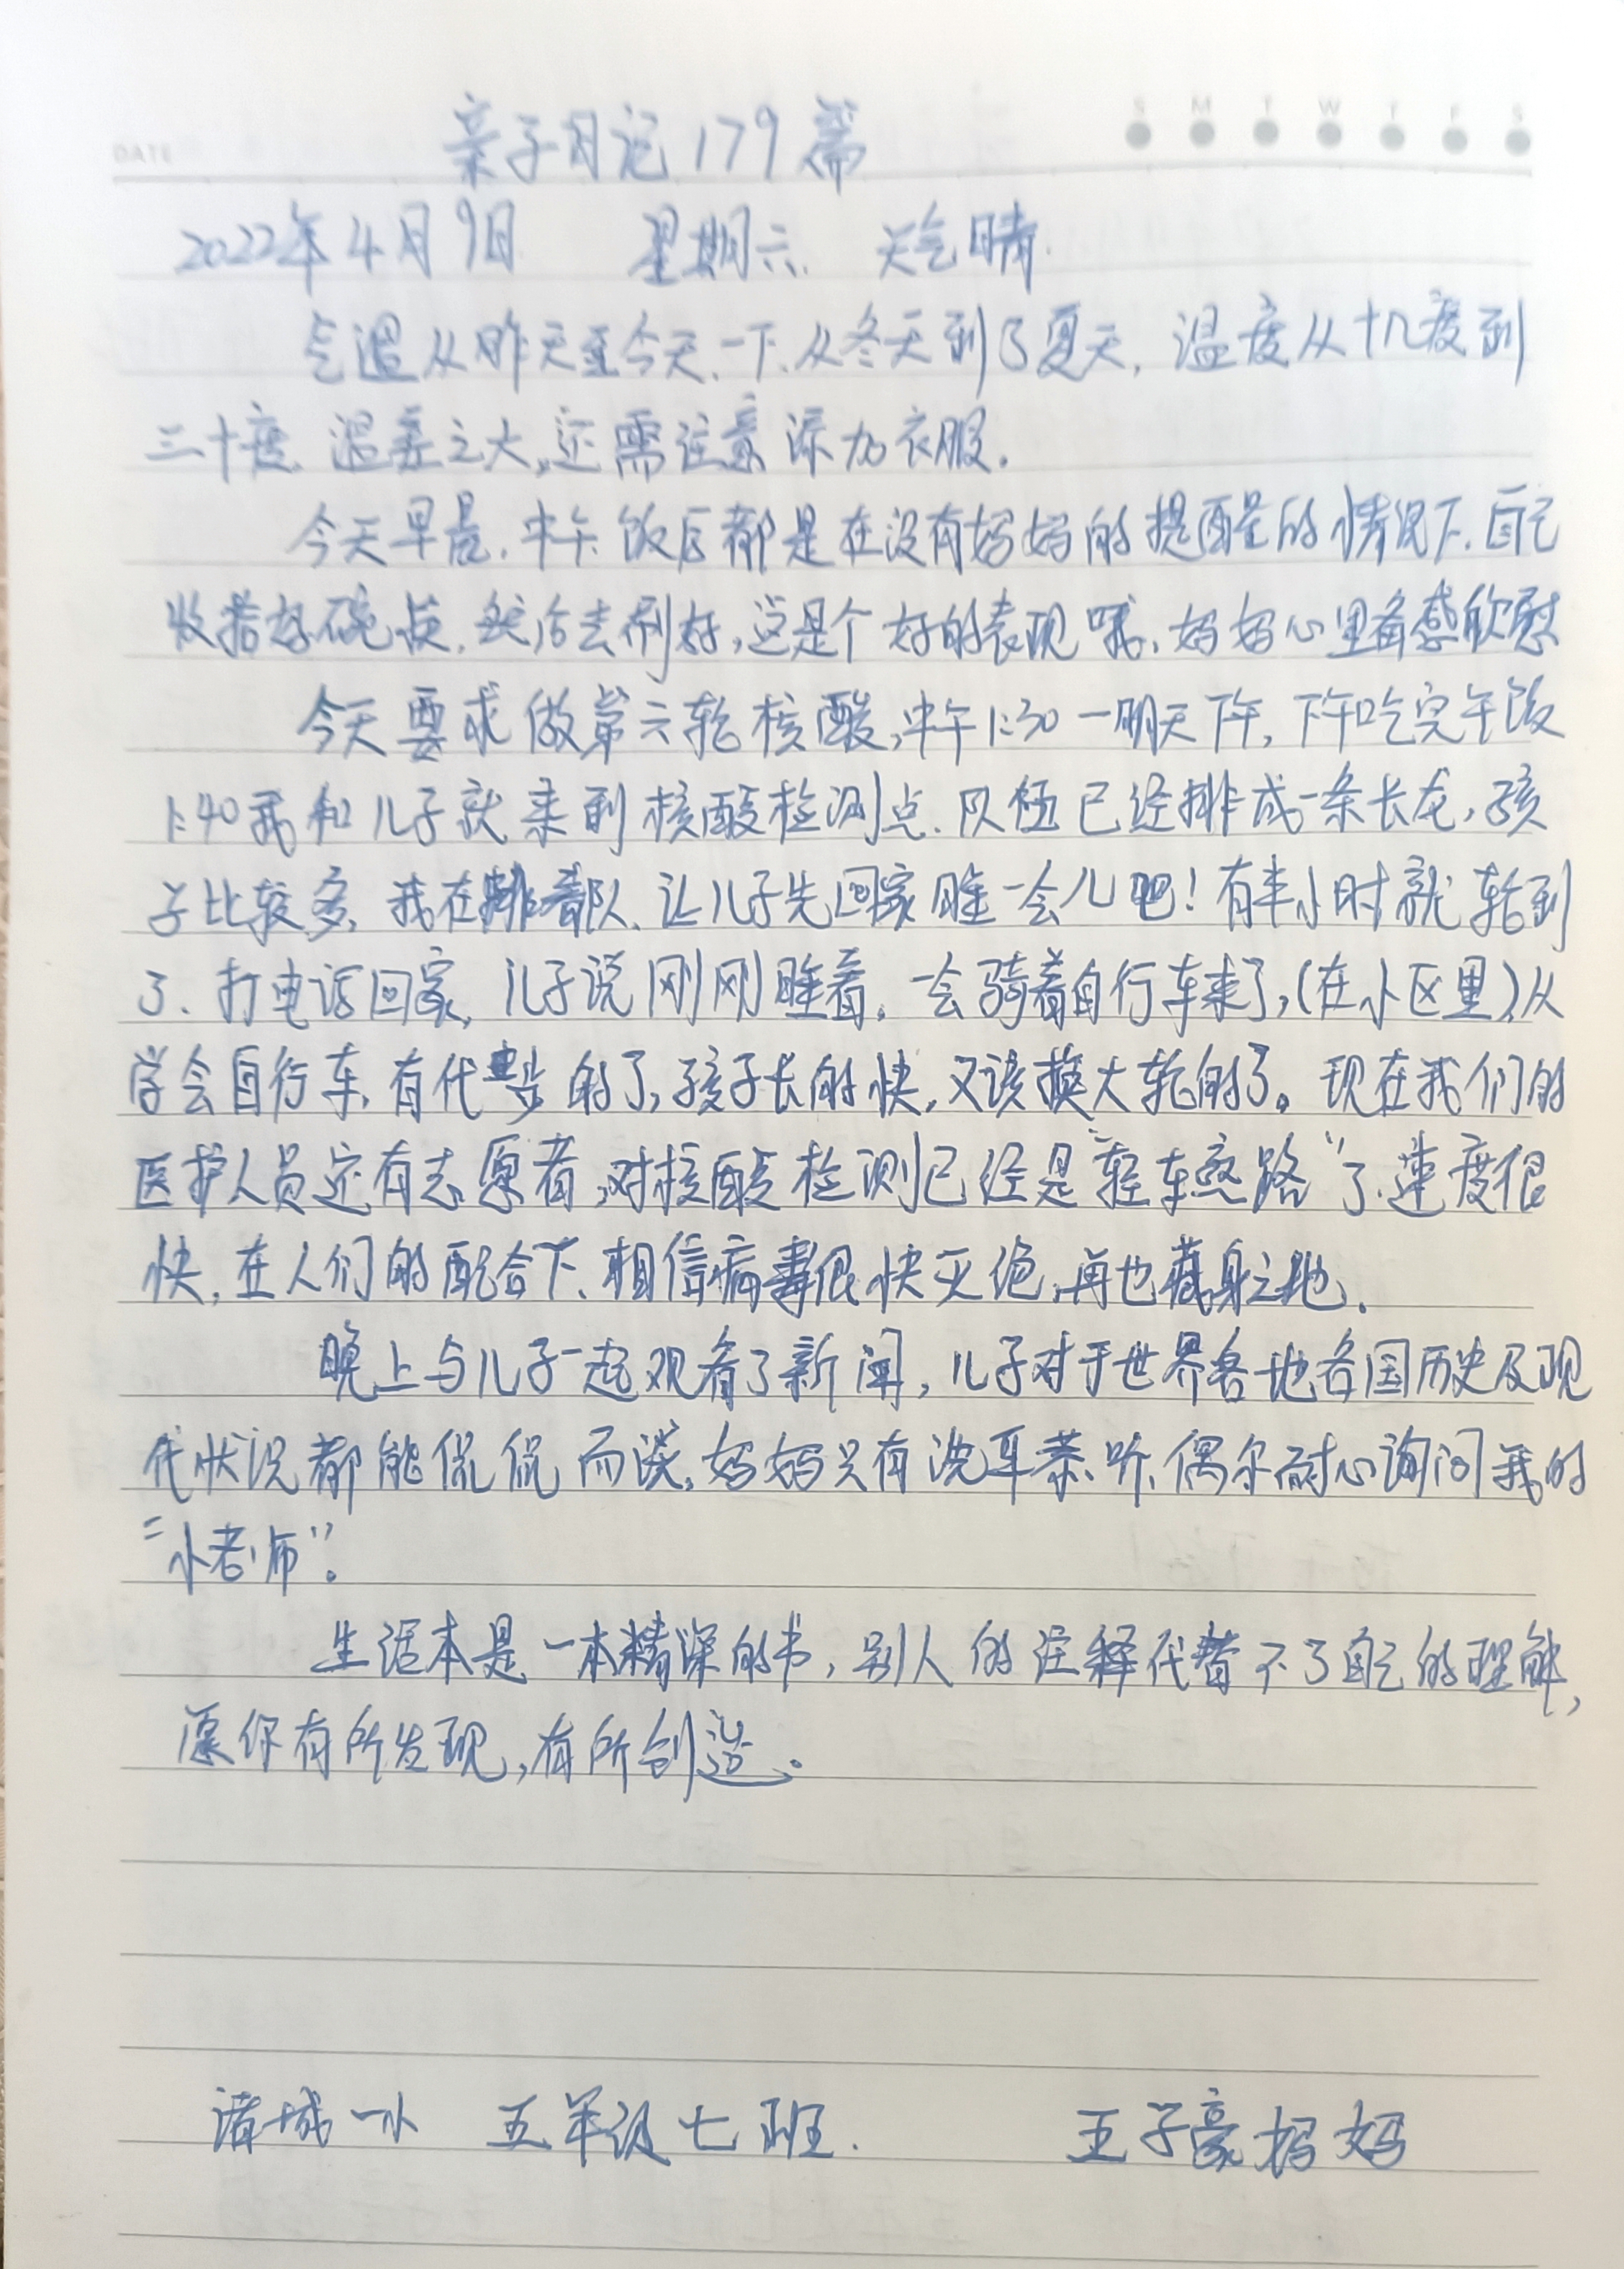 DATE
S M T W T F S
亲子日记179篇
2022年4月9日 星期六. 天气晴.
气温从昨天至今天、一下、从冬天到了夏天, 温度从十几度到
三十度. 温差之大,还需注意添加衣服.
今天早晨. 中午、饭后都是在没有妈妈的提醒的情况下. 自己
收拾好碗筷. 然后去刷好,这是个好的表现哦、妈妈心里备感欣慰
今天要求做第六轮核酸,中午1:30一明天下午, 下午吃完午饭
1:40我和儿子就来到核酸检测点. 队伍已经排成一条长龙,孩
子比较多, 我在排着队、让儿子先回家睡一会儿吧!有半小时就轮到
了、打电话回家, 儿子说刚刚睡着。一会骑着自行车来了,(在小区里)从
学会自行车,有代步的了,孩子长的快,又该换大轮的了。现在我们的
医护人员还有志愿者,对核酸检测已经是“轻车熟路”了.速度很
快,在人们的配合下、相信病毒很快灭绝,再也藏身之地.
晚上与儿子一起观看了新闻, 儿子对于世界各地各国历史及现
代状况都能侃侃而谈,妈妈只有洗耳恭听、偶尔耐心询问我的
“小老师”.
生活本是一本精深的书, 别人的注释代替不了自己的理解,
愿你有所发现,有所创造。
诸城一小 五年级七班. 王子豪妈妈